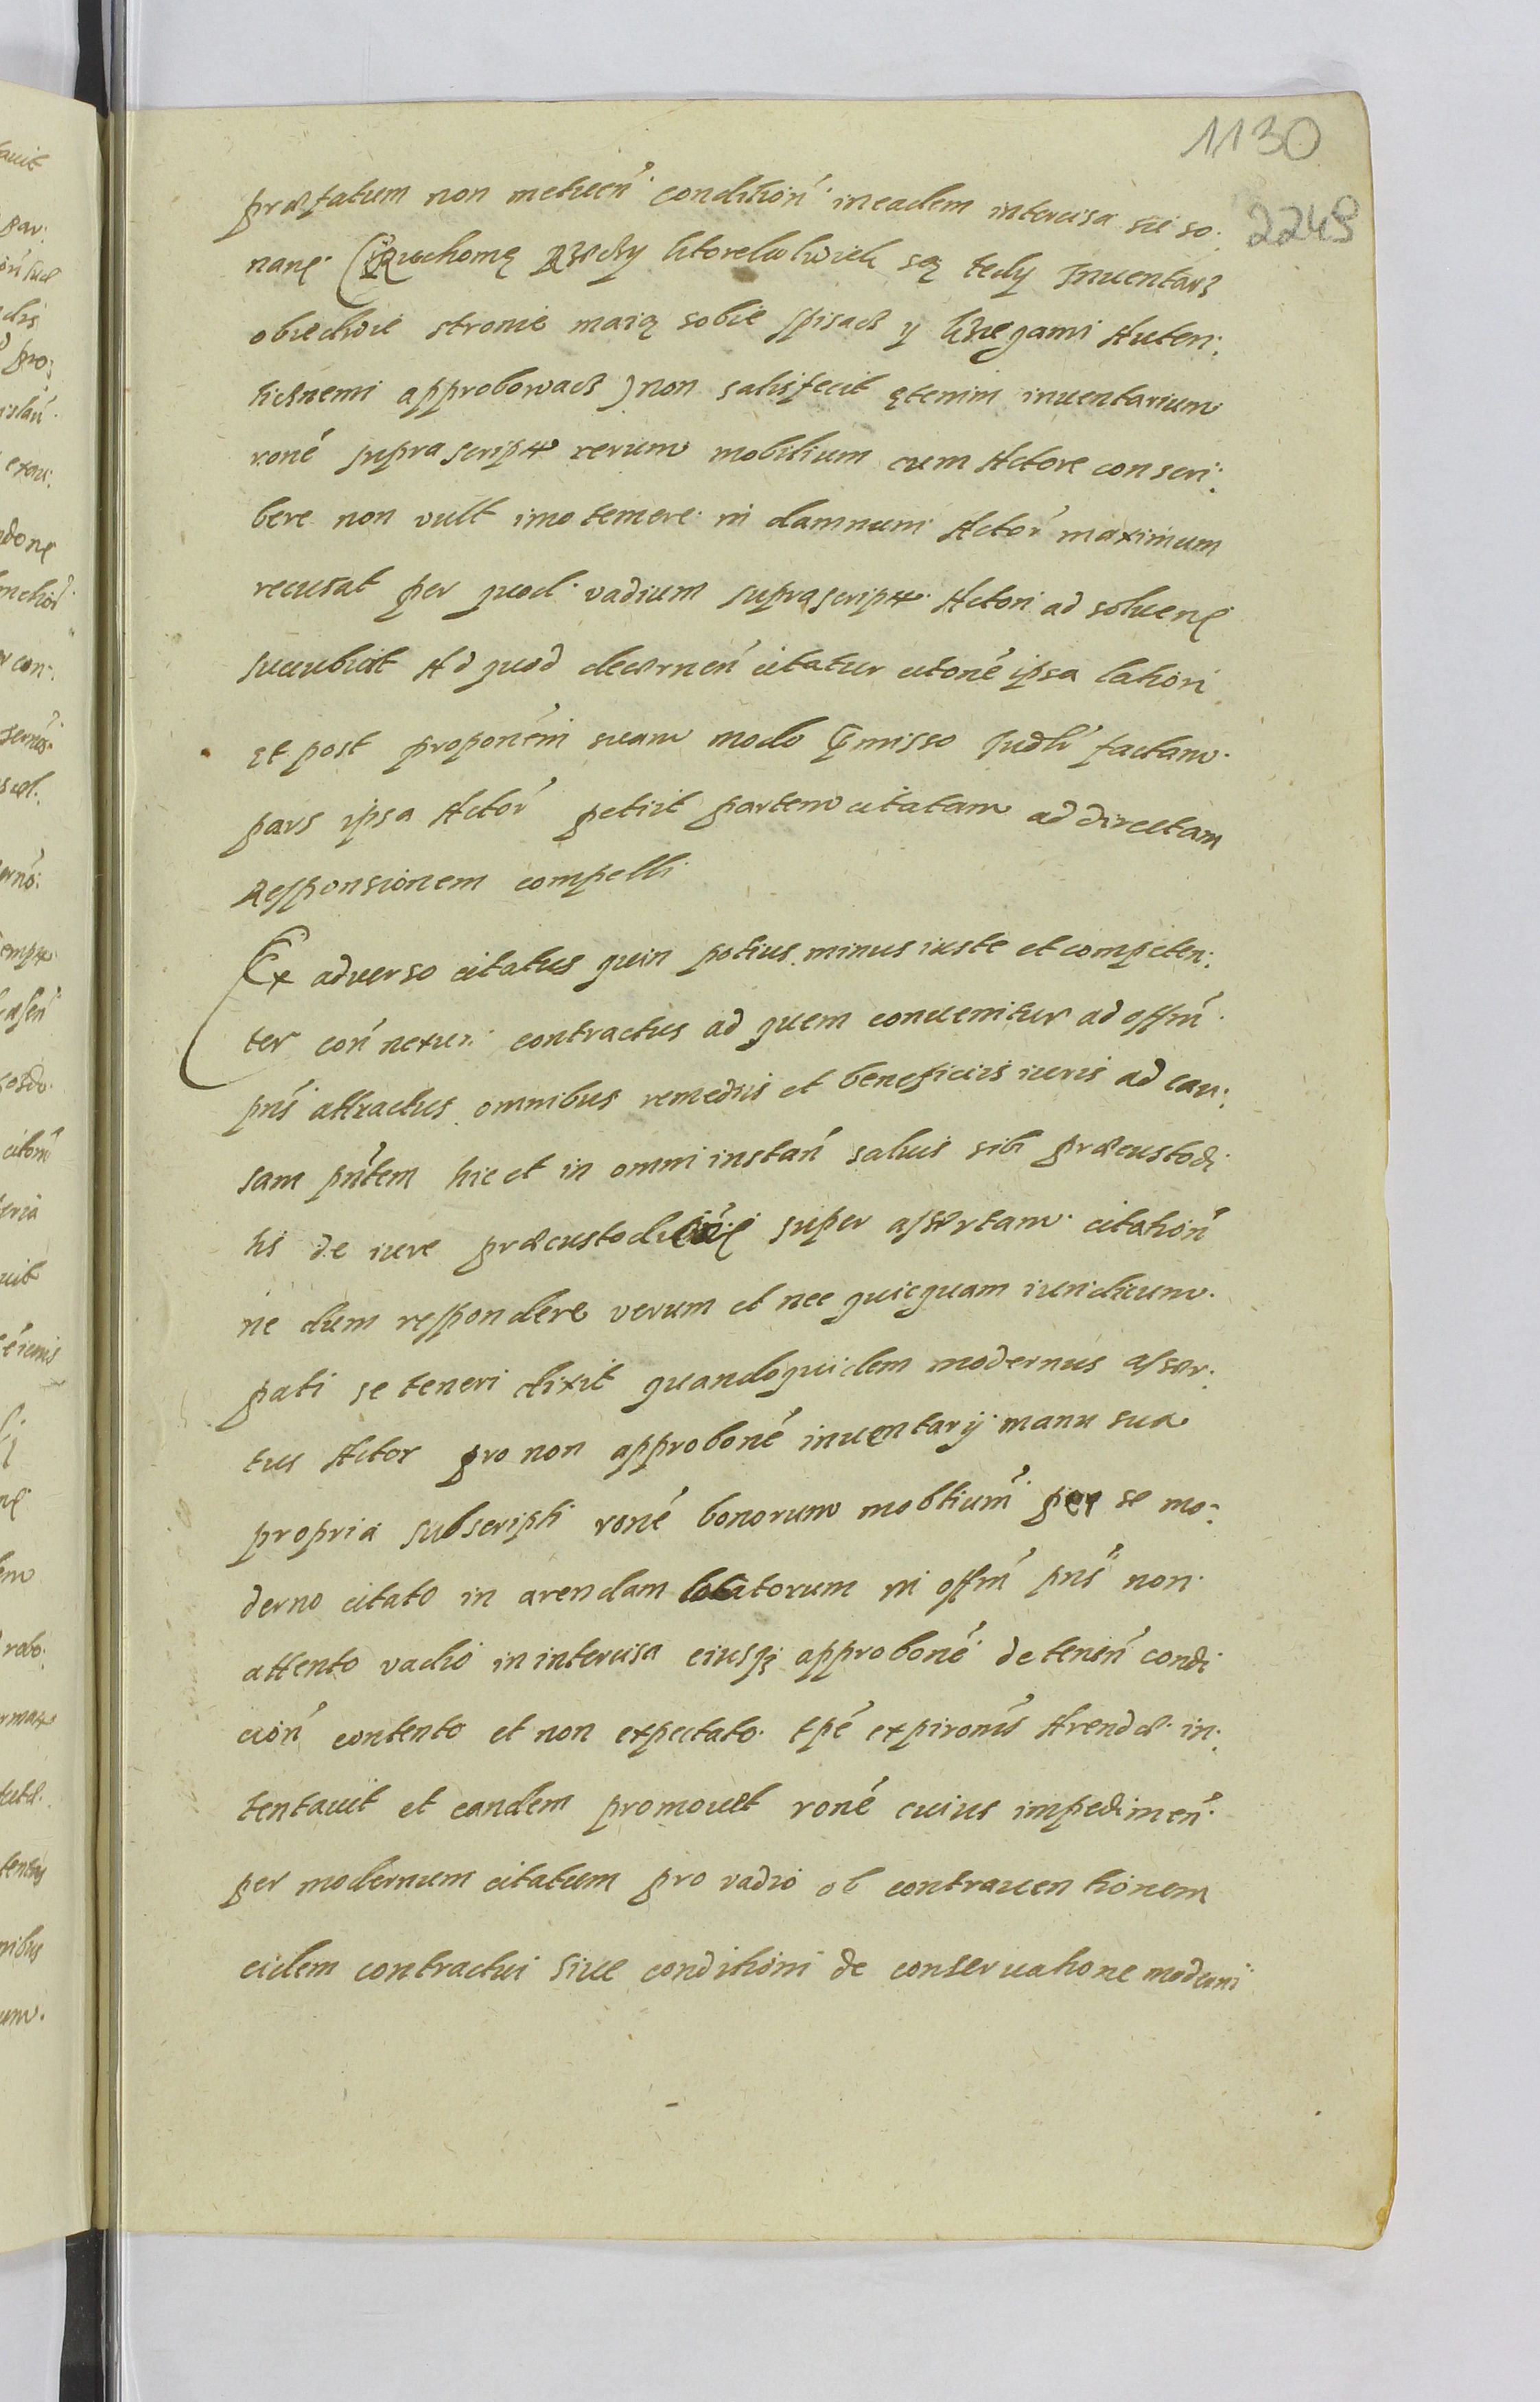 1130
2249
præfatum non metuen̄ condition̄ in eadem intercisa sic so:
nan͠ (Ruchome Rzeczy ktorekolwiek są tedy Inwentarz
obiedwie stronie maią sobie spisacz y Xięgami Auten:
ticznemi approbowacz) non satisfecit etenim inuentarium
rōne suprascriptar. rerum mobilium cum Actore conscri:
bere non vult imo temere in damnum Actor̄ maximum
recusat per quod vadium suprascriptū Actori ad soluen͠
succubuit Ad quod decernen̄ citatur citōne ipsa latiori
Et post propōnem suam modo p̄misso Judlr̄ factam
pars ipsa Actor̄ petiit partem citatam ad directam
Responsionem compelli
Ex aduerso citatus quin potius minus iuste et competen:
ter con̄nexui contractus ad quem conuenitur ad offm̄
pn̄s attractus omnibus remediis et beneficiis iuris ad cau:
sam pn̄tem hic et in omni instan̄ saluis sibi præcustodi
tis de iure præcustodien͠ super assertam citation̄
ne dum respondere verum et nec quicquam iuridicum
pati se teneri dixit quandoquidem modernus asser:
tus Actor pro non approbōne inuentarij manu sua
propria subscripti rōne bonorum mobilium̄ per se mo:
derno citato in arendam locatorum in offm̄ pn̄s non
attento vadio in intercisa eiusq; approbōne de tenen̄ condi
cion̄ contento et non expectato tp̄e expirōnis Arendæ in:
tentauit et eandem promouet rōne cuius impedimen̄
per modernum citatum pro vadio ob contrauentionem
eidem contractui siue conditioni de conseruatione moderni